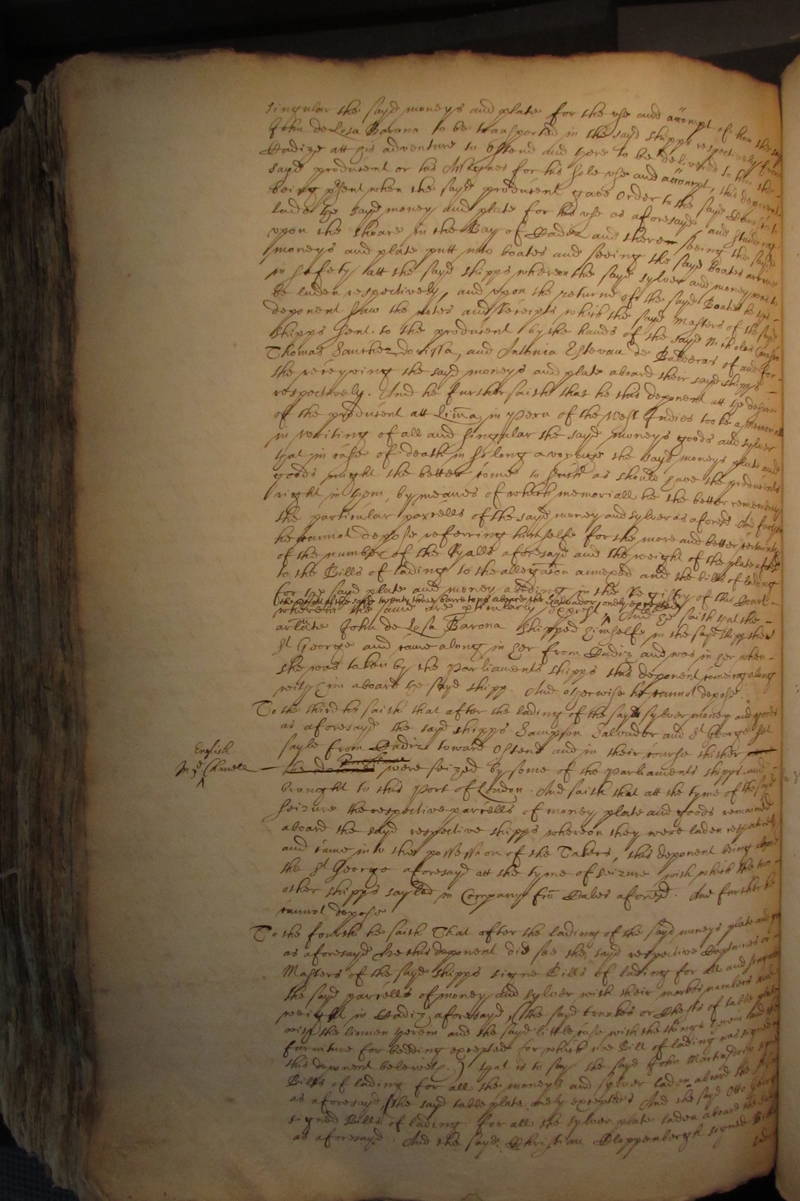 singular the sayd moneys and plate for the use and accompt of him the sayd
John de Lesa Barona to be transported in the sayd shipps respectively from
Cadize att his adventure to Ostend and there to be delivered to him the
sayd producent or his Assignes for his sole use and accompt, this deponent
being present when the sayd producent gave order to the sayd
lade the sayd money and plate for his use as aforesayd and standing
upon the shoare in the Bay of Cadiz and there seeing the sayd
moneys and plate putt into boates and seeing the sayd boates arrive
in safety att the sayd shipps whereon the sayd sylver and moneys were to
be laden respectively, and upon the returne of the sayd Boates he this
deponent saw the notes and Receipts which the sayd Masters of the sayd
shipps sent to the producent by the hands of the sayd Nicholas
Thomas Sanchez Dorissa, and Anthonio Estevan de of and for
the receyving the sayd moneys and plate aboard their sayd shipps
respectively. And he further saith that he this deponent att the
of the producent att Lima in Peru of the West Indies tooke a memoriall
in writing of all and singular the sayd moneys goods and sylver
that in case of death in so long a voyage the sayd moneys plate and
goods might the better come to such as should have the producents
right in them, by meanes of which memoriall he the better remembers
the particular parcells of the sayd money and sylver as aforesayd And further
he cannot depose referring himselfe for the more and better certainty
of the number of the Ryalls aforesayd and the weight of the plate
to the Bills of lading to the allegation annexed and the bills of lading
for the sayd plate and money in the Registry of this Court
wherein the same are particularly And he saith that the
articulate John de Lesa Barona shipped himselfe in the sayd shipp the
St George and came along in her from Cadiz and was in her when
she was taken by the Parliaments shipps this deponent coming along
with him aboard the sayd shipp. And otherwise he cannot depose.
To the third he saith that after the lading of the sayd sylver money and goods
as aforesayd the sayd shipps Sampson Salvador and St George set
sayle from Cadiz toward Ostend and in their course thither
English
in the Channell were seized by some of the Parliaments shipps and
brought to this Port of London. And saith that att the tyme of the sayd
seizure the respective parcells of money plate and goods remained
aboard the sayd respective shipps whereon they were laden respectively
and came into the possession of the Takers, this deponent being aboard
the St George aforesayd att the tyme of seizure with which the two
other shipps sayled in Company from Cales aforesayd. And further he
cannot depose
To the fourth he saith That after the lading of the sayd moneys plate and goods
as aforesayd hee this deponent did see the sayd respective Captaines or
Masters of the sayd shipps signe Bills of lading for all and singular
the sayd parcells of money and sylver with their markes numbers and
weight in Cadiz aforesayd (the sayd trunkes or Chests of table plate
with the linnen therein and the sayd little case with the things therein and the
furniture for bedding excepted for which noe Bill of lading was signed
this deponent beleives) that is to say the sayd John Martinson signed
Bills of lading for all the moneys and sylver laden aboard the
as aforesayd (the sayd table plate onely excepted) And the sayd Otto George
signed Bills of lading for all the sylver plate laden aboard his
as aforesayd. And the sayd Christian Cloppenburgh signed Bills